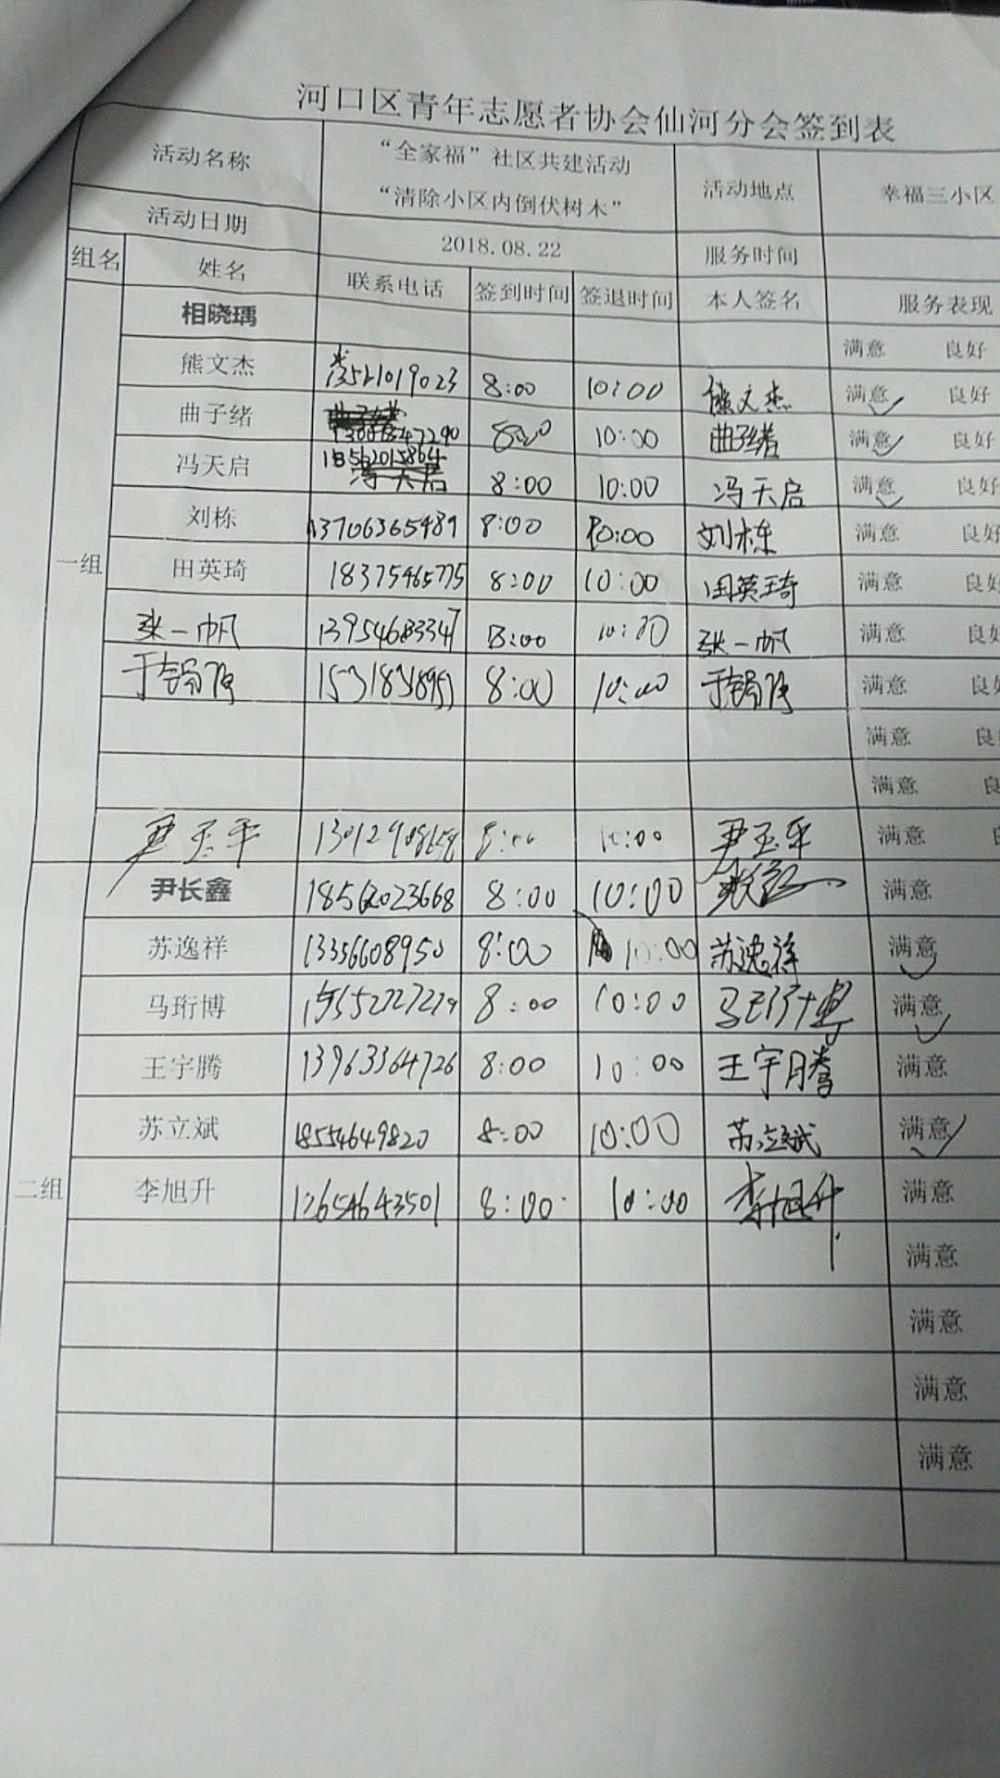 河口区青年志愿者协会仙河分会签到表
活动名称 “全家福”社区共建活动 “清除小区内倒伏树木” 活动地点 幸福三小区
活动日期 2018.08.22 服务时间
组名 姓名 联系电话 签到时间 签退时间 本人签名 服务表现
一组
相晓瑀 满意 良好
熊文杰 8:00 10:00 熊文杰 满意 良好
曲子绪 8:00 10:00 曲子绪 满意 良好
冯天启 18562015864 冯天启 8:00 10:00 冯天启 满意 良好
刘栋 13706365489 8:00 10:00 刘栋 满意 良好
田英琦 18375465775 8:00 10:00 田英琦 满意 良好
张一帆 13954683347 8:00 10:00 张一帆 满意 良好
于 8:00 10:00 于 满意 良好
满意 良
满意 良
尹玉平 8:00 10:00 尹玉平 满意
二组
尹长鑫 18562023668 8:00 10:00 满意
苏逸祥 13356608950 8:00 10:00 苏逸祥 满意
马珩博 8:00 10:00 马珩博 满意
王宇腾 13963364726 8:00 10:00 王宇腾 满意
苏立斌 18554649820 8:00 10:00 苏立斌 满意
李旭升 8:00 10:00 李旭升 满意
满意
满意
满意
满意